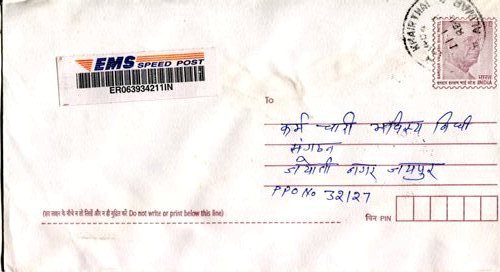 EMS SPEED POST
ER063934211IN
भारत
INDIA
To
कर्म चारी भविष्य निधी
संगठन
ज्योती नगर जयपुर
PPO No 32127
पिन PIN
(इस लाइन के नीचे न तो लिखें और न ही मुद्रित करें Do not write or print below this line)